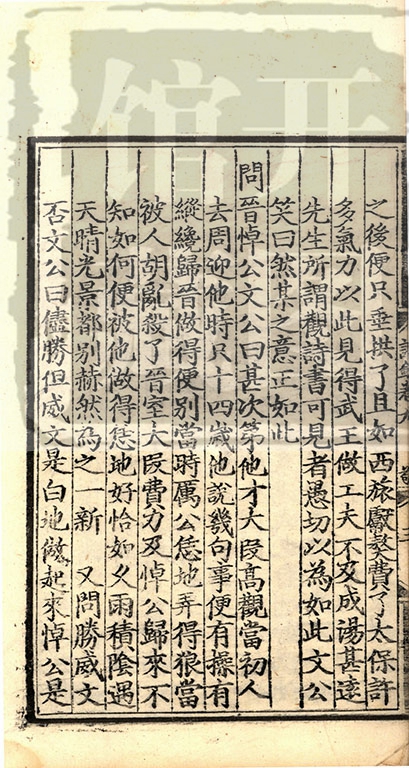 之後便只垂拱了且如西旅獻獒費了太保許
多氣力以此見得武王做工夫不及成湯甚遠
先生所謂觀詩書可見者愚切以為如此文公
笑曰然某之意正如此
問晉悼公文公曰甚次第他才大段高觀當初人
去周迎他時只十四歲他說幾句事便有操有
縱纔歸晉做得便別當時厲公恁地弄得狼當
被人胡亂殺了晉室大段費力及悼公歸來不
知如何便被他做得恁地好恰如久雨積陰遇
天晴光景都別赫然為之一新 又問勝威文
否文公曰儘勝但威文是白地做起來悼公是
开馆